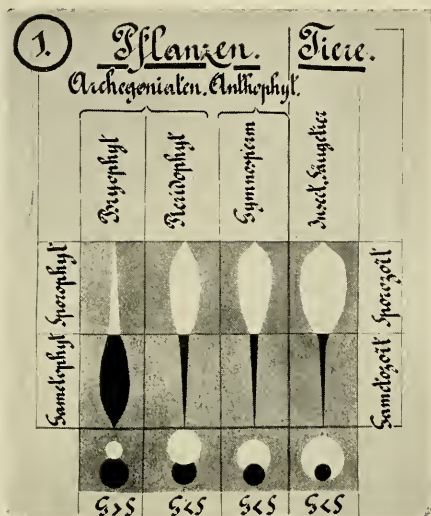 1. Pflanzen. Tiere.
Archegoniaten. Anthophyt.
Bryophyt
Pteridophyt
Gymnosperm
Insect, Säugetier
Gametophyt Sporophyt
Gametozoit Sporozoit
G>S G<S G<S G<S